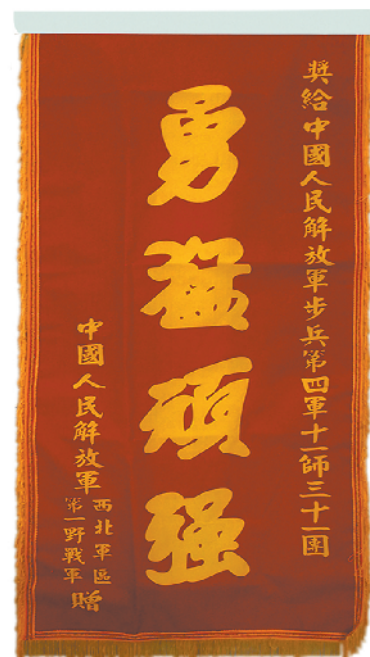 奨給中國人民解放軍步兵第四軍十一師三十一團
勇猛頑强
中國人民解放軍
西北軍區
第一野戰軍
贈